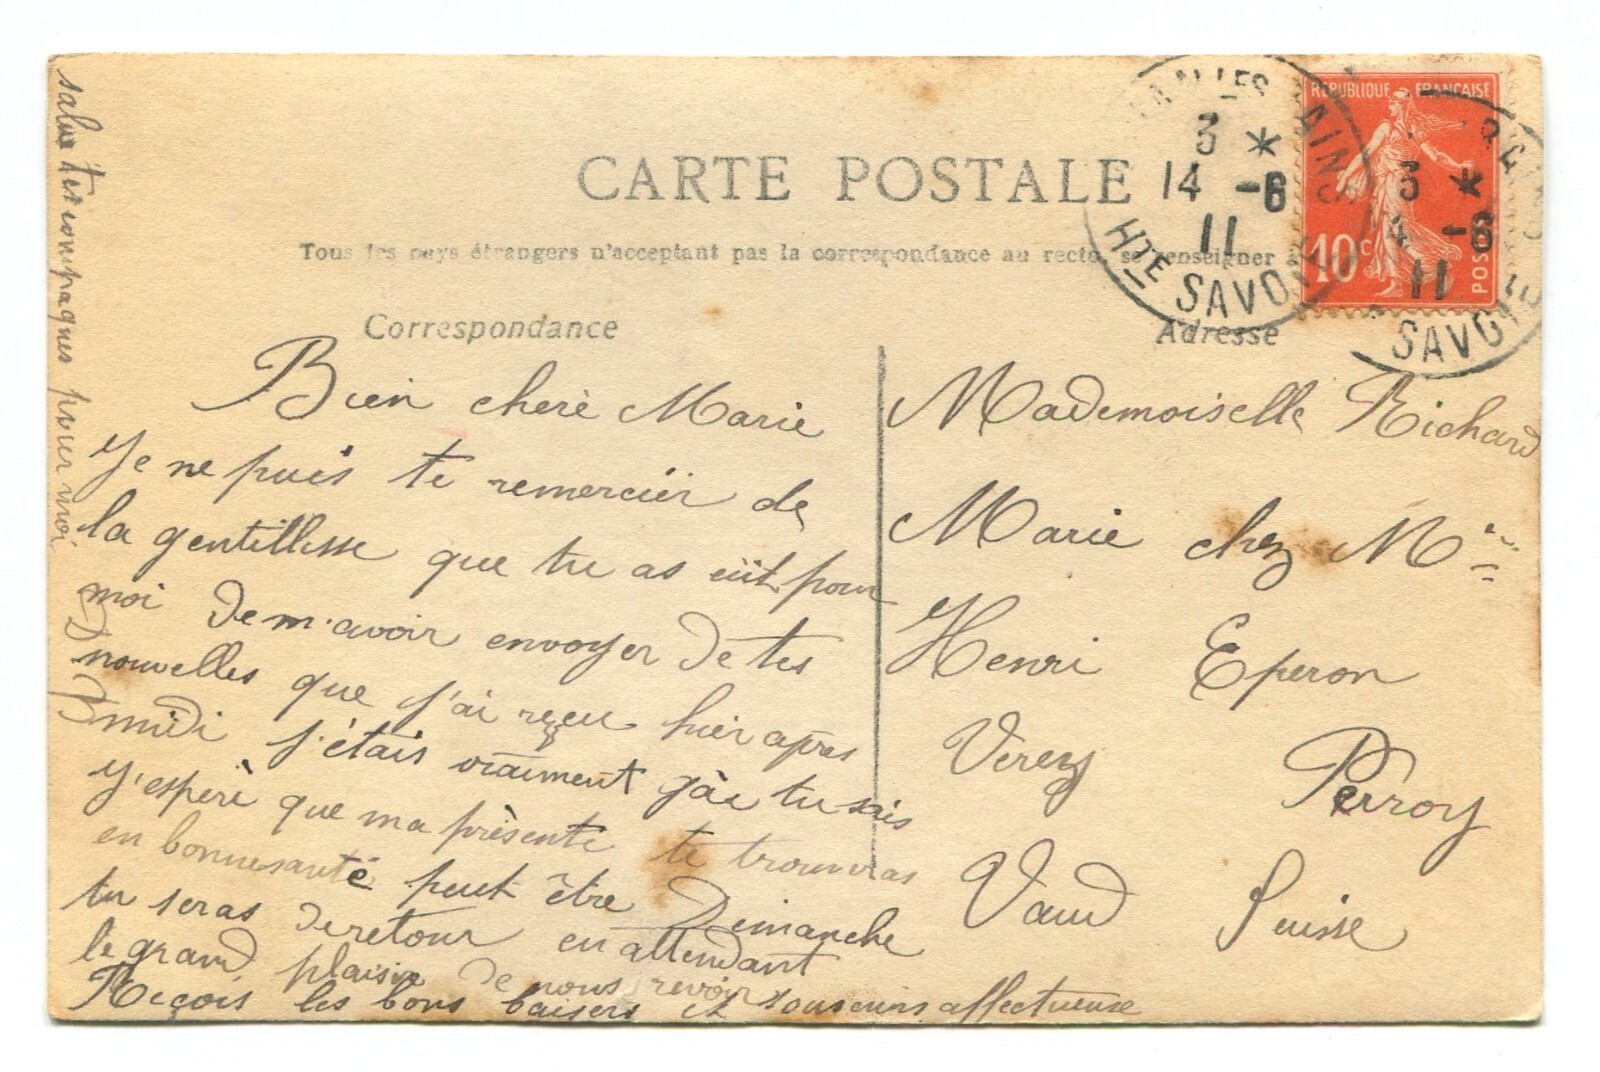 CARTE POSTALE
Tous les pays étrangers n'acceptant pas la correspondance au recto, se renseigner
Correspondance
Adresse
RÉPUBLIQUE FRANÇAISE
10c
POSTES
3 *
14 -6
11
Hte SAVOIE
3 *
4 -6
11
SAVOIE
Bien cherè Marie
Je ne puis te remercier de
la gentillesse que tu as eüt pour
moi de m'avoir envoyer de tes
nouvelles que j'ai reçeu hier apres
midi j'étais vraiment gâe tu sais
J'esperè que ma prèsente te trouveras
en bonne santé peut être Dimanche
tu seras de retour en attendant
le grand plaisir de nous revoir
Reçois les bons baisers et affectueuse
salue tes compagnes pour moi
Mademoiselle Richard
Marie chez Mme
Henri Eperon
Verey Perroy
Vaud Suisse